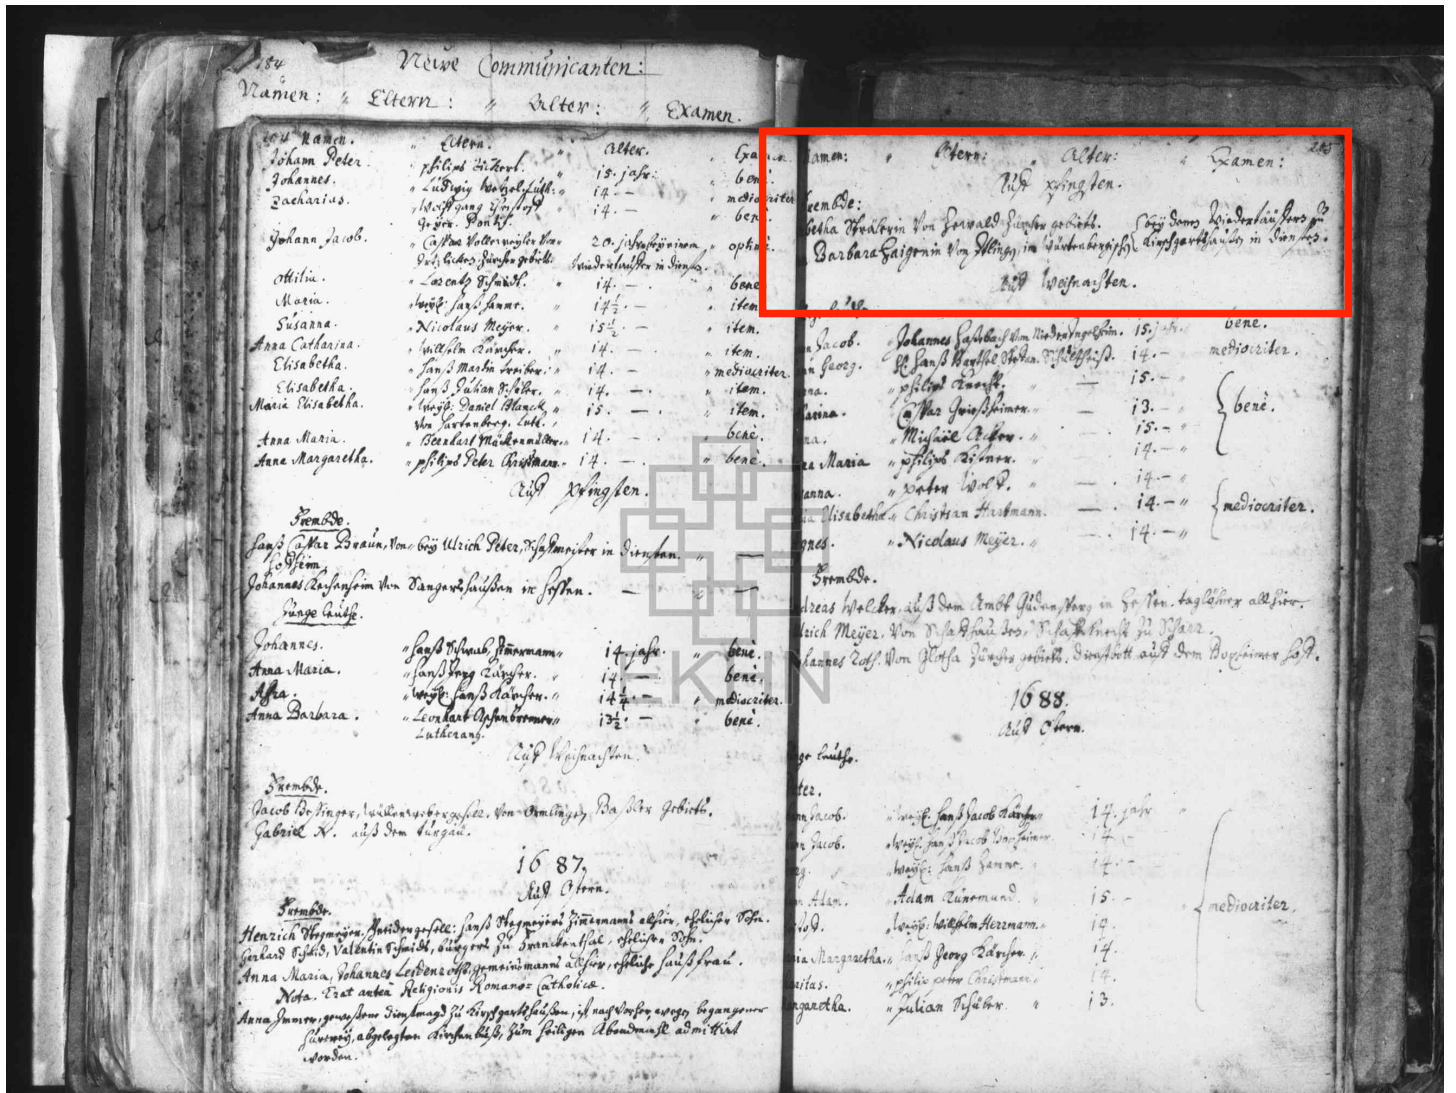 184 Neüe Communicanten:
Namen: " Eltern: " Alter: " Examen.
184 Namen. " Eltern. " Alter. " Examen
Johann Peter. " philips 15. jahr. " benè.
Johannes. " Ludwig Wetzel, Luth: " 14. — " mediocriter
Zacharias. " Wolffgang 14. — " benè.
Geyer. Pontif.
Johann Jacob. " Caspar Vollenweyler von 20. jahr bey einem " optimè.
Zürcher gebieth. Wiedertäuffer in diensten.
Ottilia. " Lorentz Schmidt. " 14. — " benè
Maria. " weyl: Hanß Hamme. " 14½ — " item.
Susanna. " Nicolaus Meyer. " 15½ — " item.
Anna Catharina. " Willhelm Kärcher. " 14. — " item.
Elisabetha. " Hanß Martin Treiber. " 14. — " mediocriter.
Elisabetha. " Hanß Julian Schüber. " 14. — " item.
Maria Elisabetha. " weyl: Daniel Blanck, 15. — " item.
von Hartenberg. Luth.
Anna Maria. " Bernhart Mückenmüller. " 14. — " benè.
Anna Margaretha. " philips Peter Christmann. " 14. — " benè.
Auff pfingsten.
Frembde.
Hanß Caspar Braun, von bey Ulrich Peter, in diensten. " —
Johannes von Sangershaußen in Hessen. — " —
Junge leuthe.
Johannes. " Hanß Schwab, Zimmermann " 14. jahr. " benè.
Anna Maria. " Hanß Jerg Kärcher. " 14. — benè.
Afra. " weyl: Hanß Kärcher. " 14¼ — " mediocriter.
Anna Barbara. " Leonhart Aschenbrenner " 13½ — " benè.
Lutheran9.
Auff Weihnachten.
Frembde.
Jacob Wüllenwebergesell. von Ormlingen, Baßler Gebiets.
Gabriel N. auß dem Turgau.
1687.
Auff Ostern.
Frembde.
Henrich Stegmeyer, Hanß Stegmeyers Zimmermanns allhier, ehelicher Sohn.
Gerhard Schmid, Valentin Schmids, bürgers zu Franckenthal, ehelicher Sohn.
Anna Maria, Johannes Leidenroths, gemeinsmanns allhier, eheliche haußfrau.
Nota. Erat antea Religionis Romano-Catholicæ.
Anna Immer, geweßene dienstmagd zu Kirschgartshaußen, ist nach vorher wegen begangener
hurerey, abgelegter Kirchenbuß, zum heiligen Abendmahl admittirt
worden.
285
amen: " Eltern: " Alter: " Examen:
Auff pfingsten.
rembde:
betha Strälerin von Zürcher gebiets. bey denen Wiedertäuffern zu
Barbara Haigenin von im Würtenbergischen Kirschgartshaußen in diensten.
Auff Weihnachten.
n Jacob. " Johannes Haßbach von NiederIngelheim. 15. jahr. benè.
an Georg. Hanß Barthel Schultheiß. 14. — mediocriter.
nna. " philips Knecht. — 15. — "
arina. Caspar Grießheimer. " — 13. — " benè.
na. " Michäel Acker. " 15. — "
na Maria " philips Kißner. — 14. — "
anna. " peter Wolf. " — 14. — "
ia Elisabetha. " Christian Hartmann. — 14. — " mediocriter.
gnes. " Nicolaus Meyer. " — 14. — "
Frembde.
dreas Welcker, auß dem Ambt Gudensperg in Hessen. taglöhner allhier.
lrich Meyer, von Schaffhaußen, Schaffknecht zu Scharr.
hannes Roth. von Zürcher gebiets, dienstbott auff dem Bopheimer hoff.
1688.
Auff Ostern.
nge leuthe.
eter.
ann Jacob. " weyl: Hanß Jacob Kärcher " 14. jahr "
nn Jacob. " weyl: Hanß Jacob 14. —
rg. " weyl: Hanß Hamme. " 14. —
n Adam. " Adam Künemund. " 15. — mediocriter.
" weyl: Willhelm Herrmann. " 14.
ria Margaretha. " Hanß Georg Kärcher. " 14.
aritas. " philips peter Christmann. " 14.
rgaretha. " Julian Schüber. " 13.
EKHN